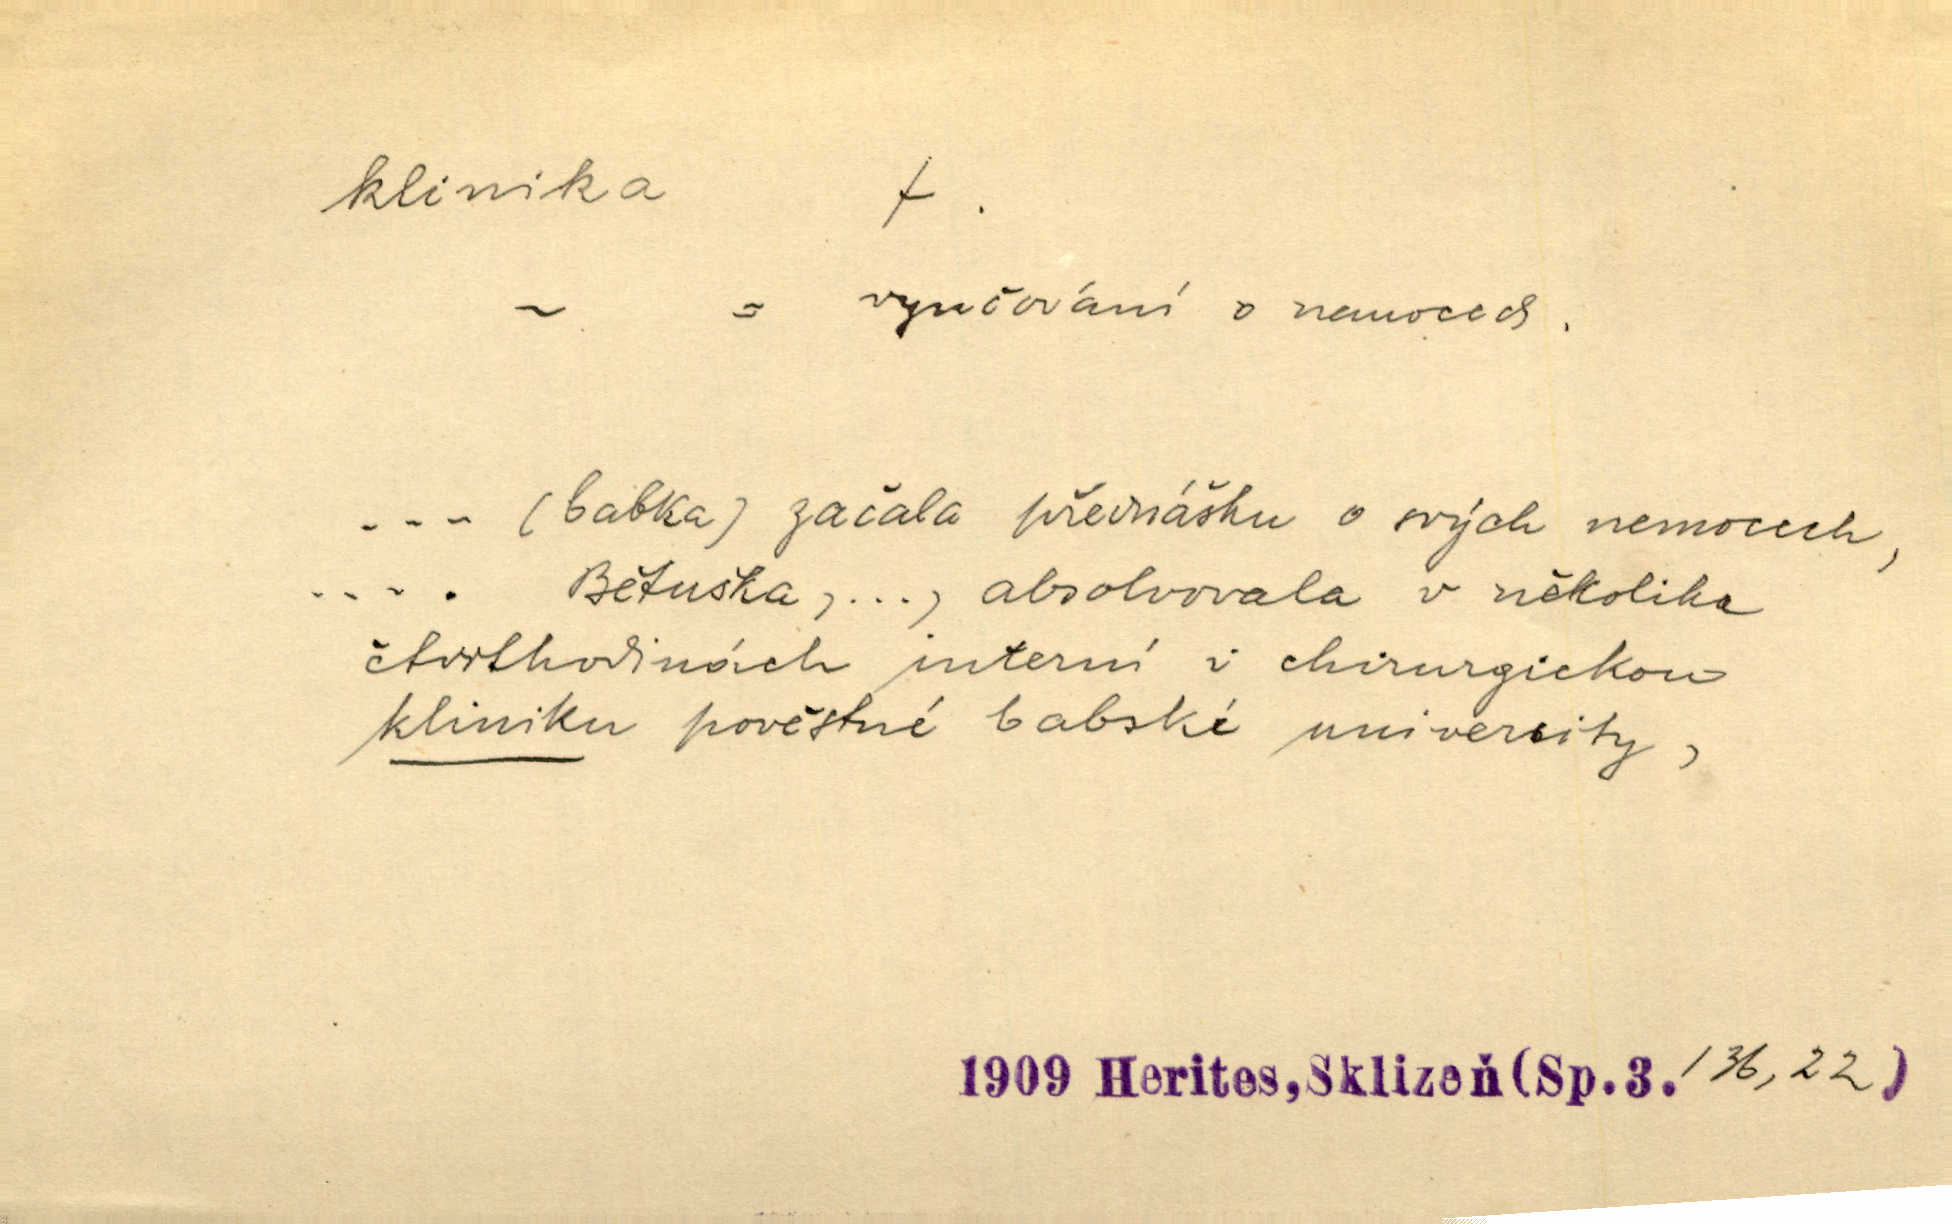 klinika f.
~ = vyučování o nemocech.
--- (babka) začala přednášku o svých nemocech,
---. Bětuška,..., absolvovala v několika
čtvrthodinách interní i chirurgickou
kliniku pověstné babské university,
1909 Herites,Sklizeň(Sp.3.136,22)